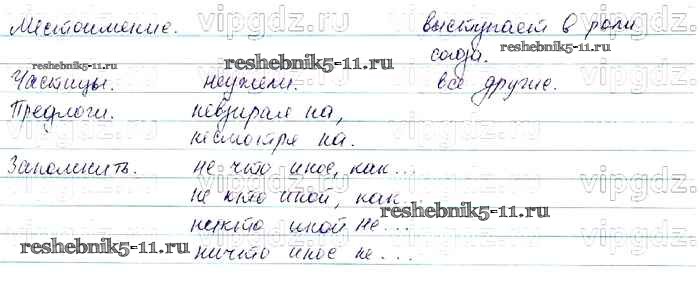 Местоимение. выступает в роли
союза.
Частицы. неужели. все другие.
Предлоги. невзирая на,
несмотря на.
Запомнить. не что иное, как...
не кто иной, как...
никто иной не...
ничто иное не...
reshebnik5-11.ru
reshebnik5-11.ru
reshebnik5-11.ru
reshebnik5-11.ru
reshebnik5-11.ru
vipgdz.ru
vipgdz.ru
vipgdz.ru
vipgdz.ru